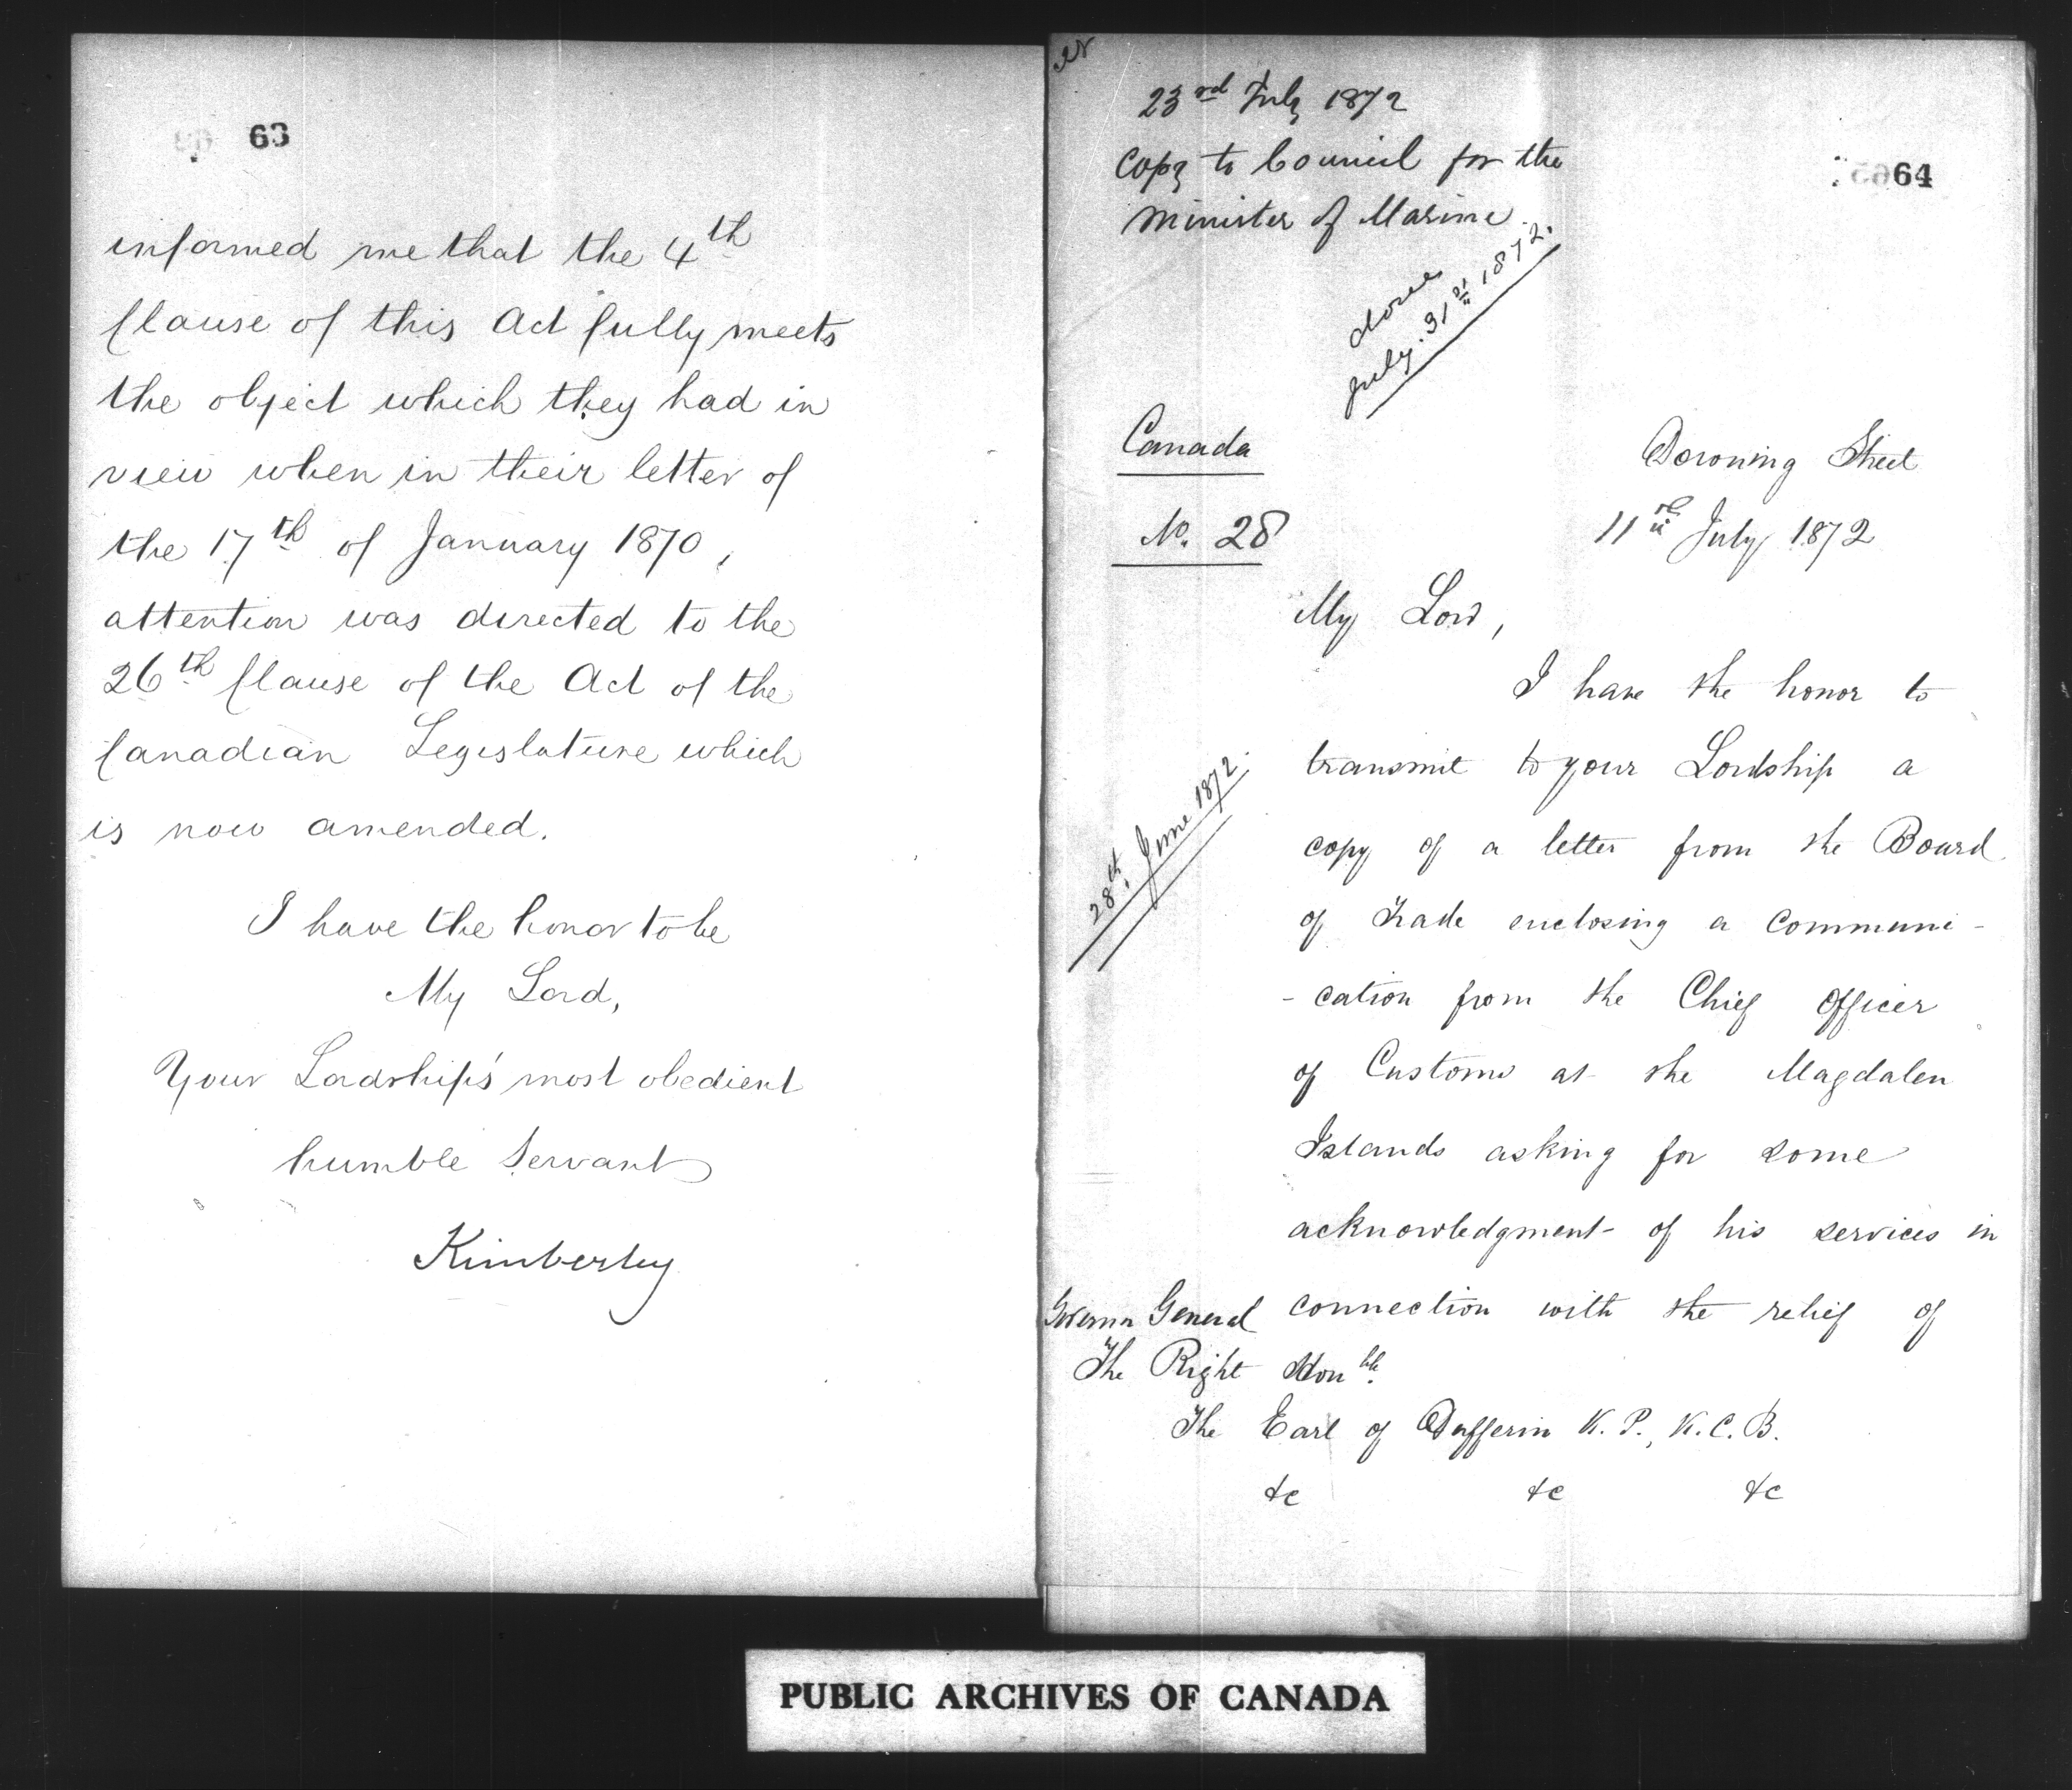 63
informed me that the 4th
Clause of this Act fully meets
the object which they had in
view when in their letter of
the 17th of January 1870,
attention was directed to the
26th Clause of the Act of the
Canadian Legislature which
is now amended.
I have the honor to be
My Lord,
Your Lordship's most obedient
humble Servant
Kimberley
23rd July 1872
Copy to Council for the
Minister of Marine.
64
done
July. 31st 1872.
Canada
No. 28
Downing Street
11th July 1872
My Lord,
I have the honor to
transmit to your Lordship a
28th. June 1872.
copy of a letter from the Board
of Trade enclosing a communi-
-cation from the Chief Officer
of Customs at the Magdalen
Islands asking for some
acknowledgment of his services in
connection with the relief of
Governor General
The Right Honble.
The Earl of Dufferin K.P., K.C.B.
&c &c &c
PUBLIC ARCHIVES OF CANADA